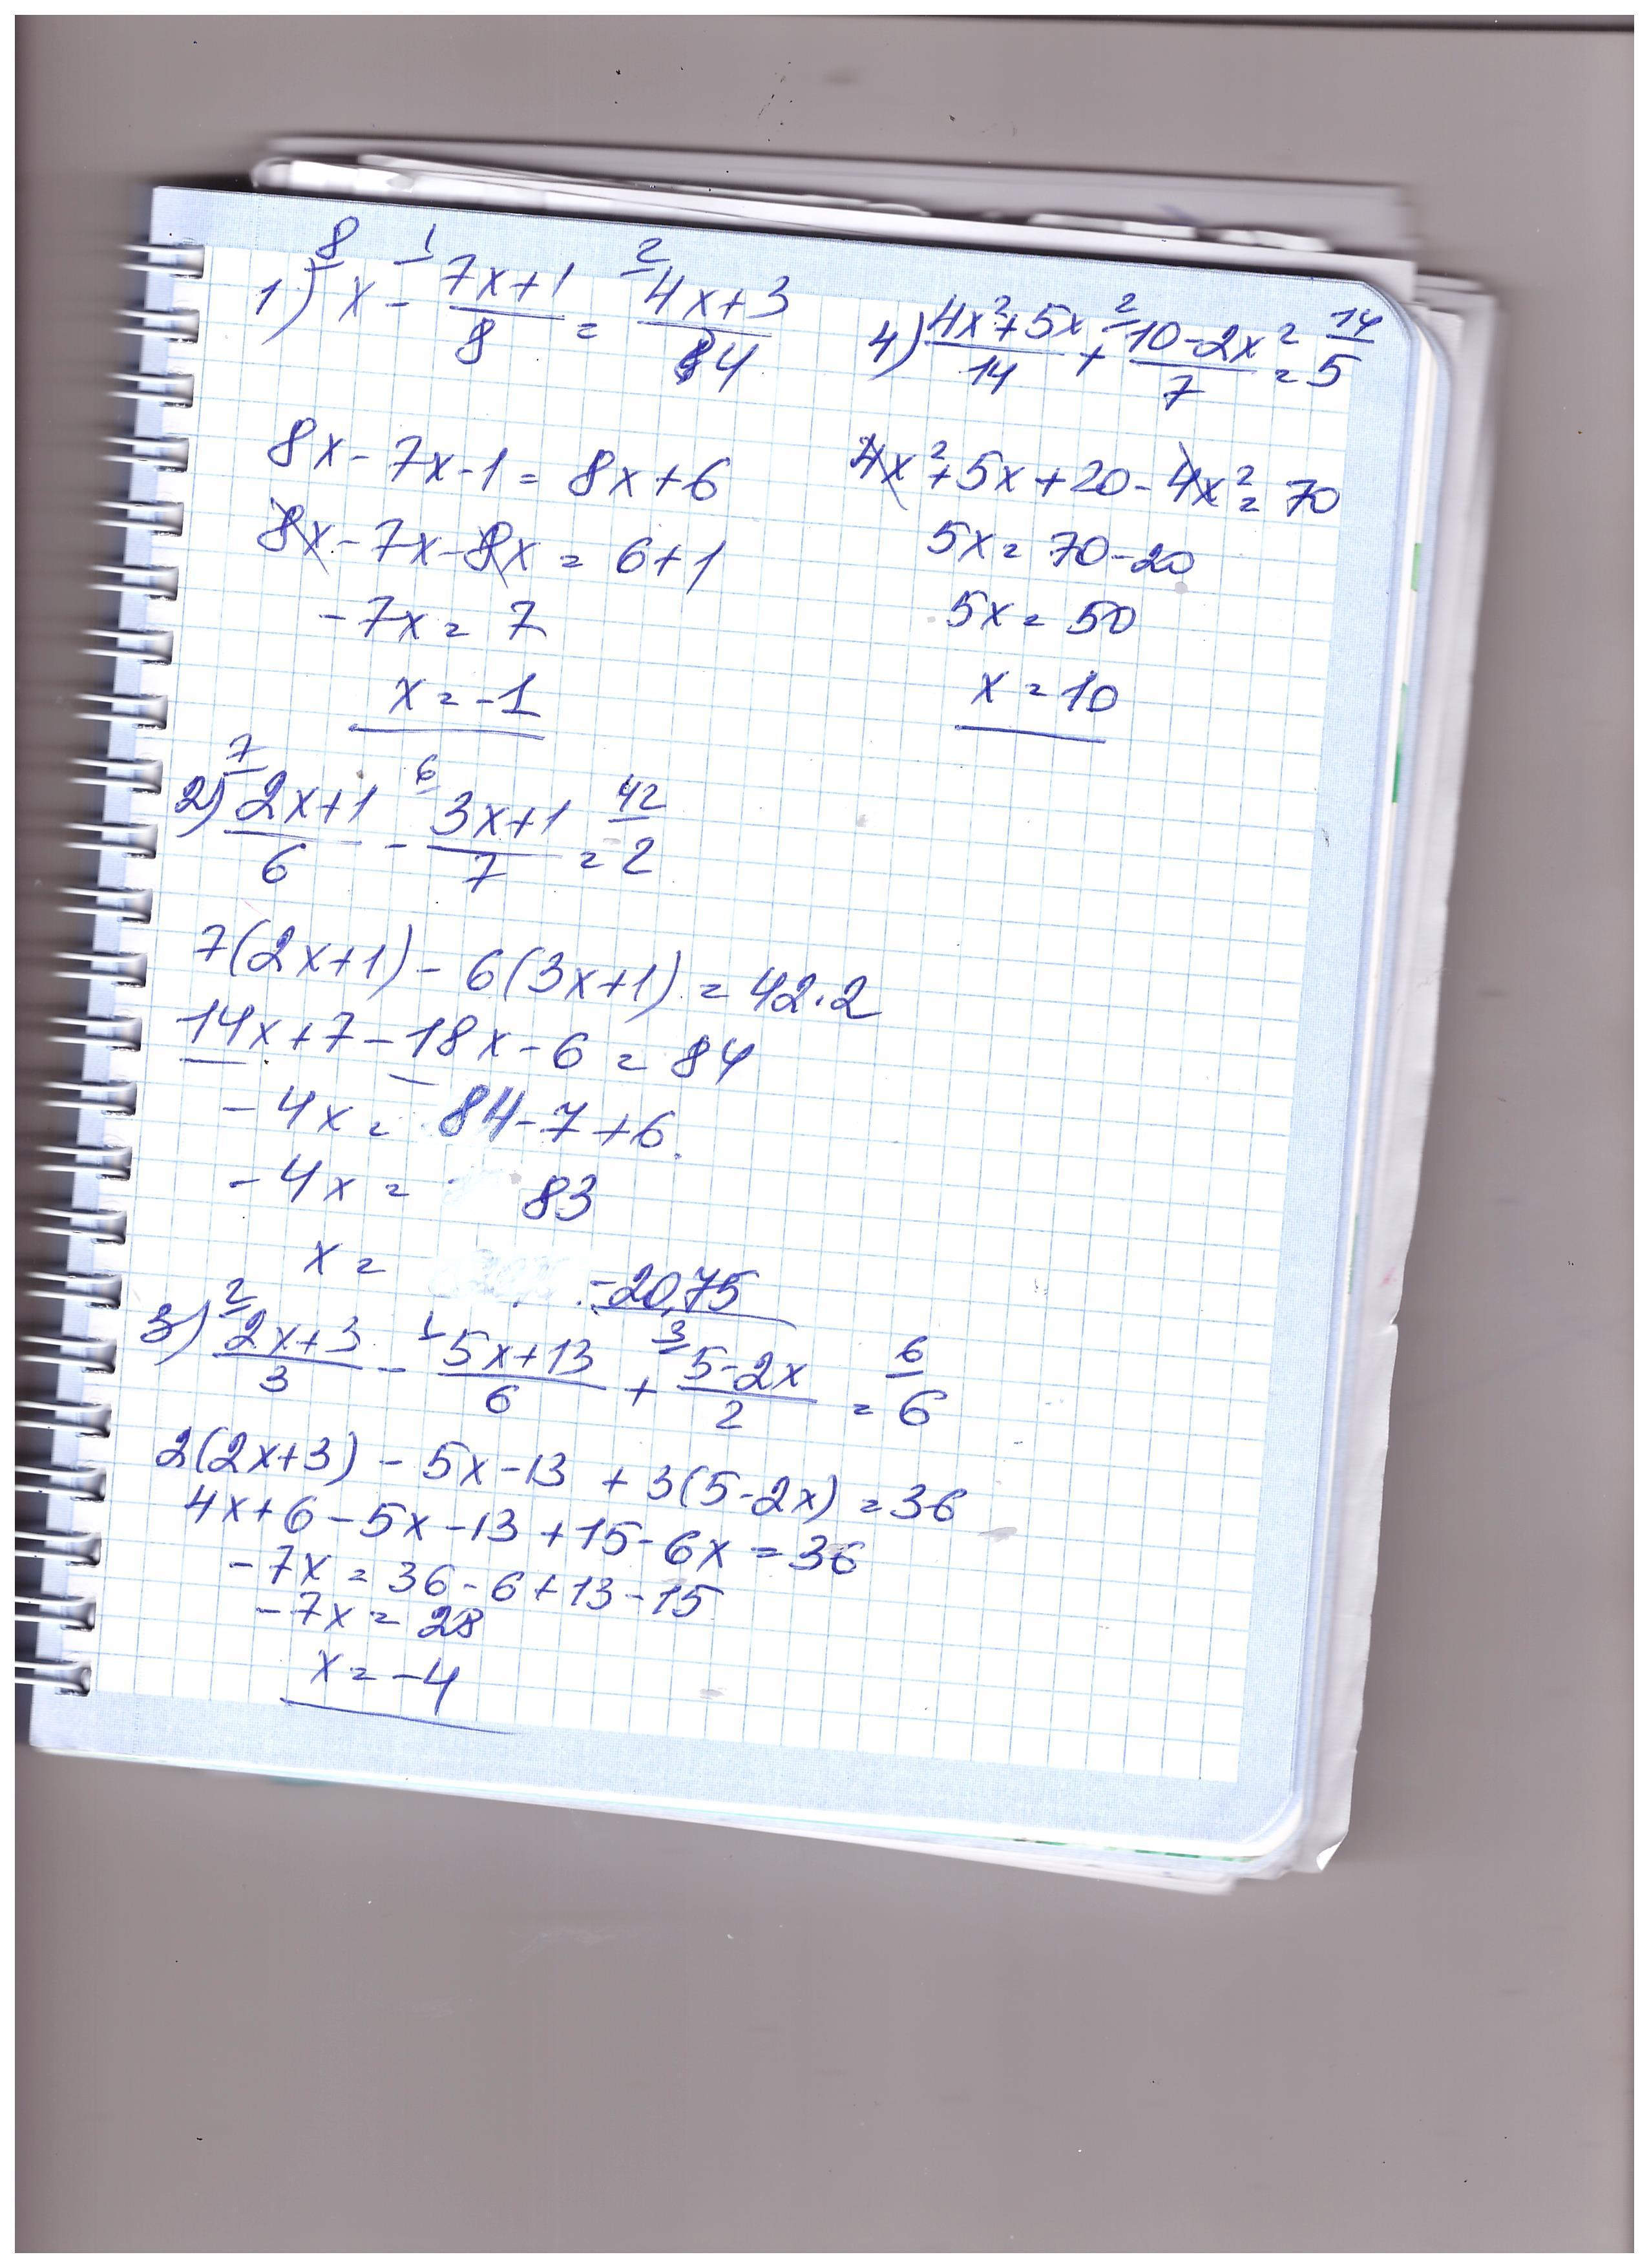 1) x - (7x+1)/8 = (4x+3)/4
8x - 7x - 1 = 8x + 6
8x - 7x - 8x = 6 + 1
-7x = 7
x = -1
2) (2x+1)/6 - (3x+1)/7 = 2
7(2x+1) - 6(3x+1) = 42·2
14x + 7 - 18x - 6 = 84
-4x = 84 - 7 + 6
-4x = 83
x = -20,75
3) (2x+3)/3 - (5x+13)/6 + (5-2x)/2 = 6
2(2x+3) - 5x - 13 + 3(5-2x) = 36
4x + 6 - 5x - 13 + 15 - 6x = 36
-7x = 36 - 6 + 13 - 15
-7x = 28
x = -4
4) (4x²+5x)/14 + (10-2x²)/7 = 5
4x² + 5x + 20 - 4x² = 70
5x = 70 - 20
5x = 50
x = 10